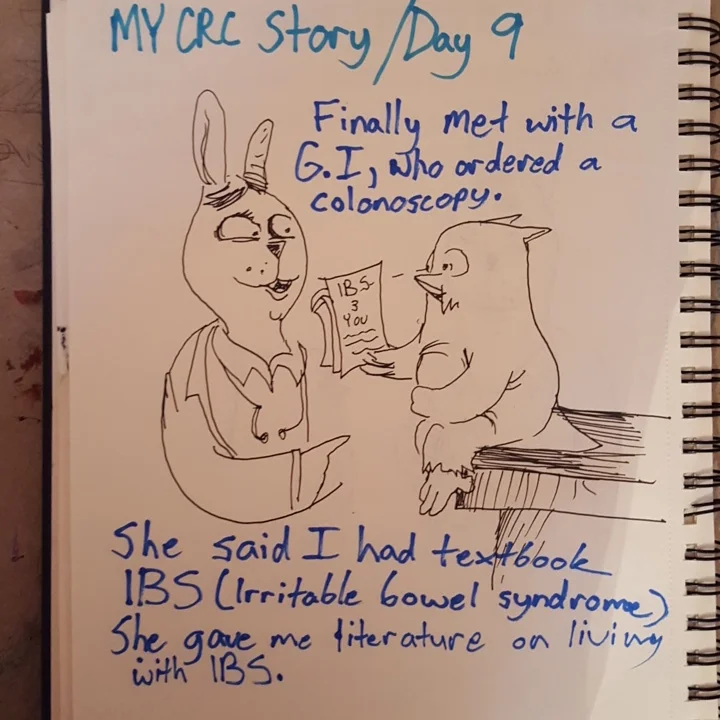 MY CRC Story/Day 9
Finally met with a
G.I, who ordered a
colonoscopy.
IBS
3
YOU
She said I had textbook
IBS (Irritable bowel syndrome)
She gave me literature on living
with IBS.